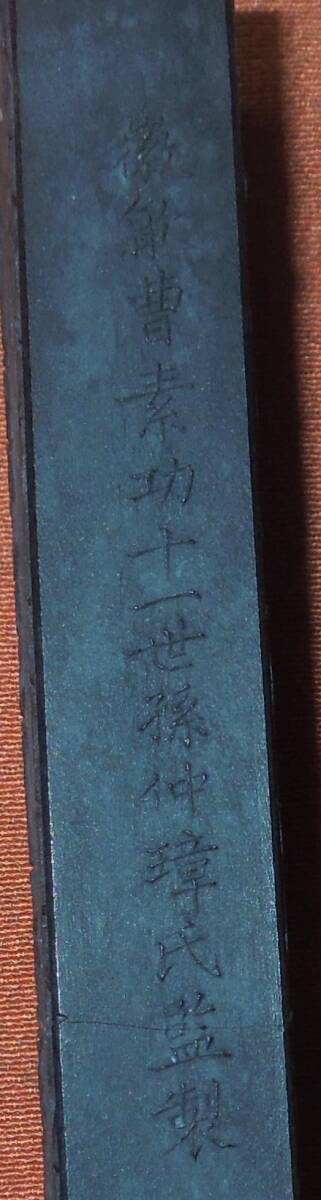 徽歙曹素功十一世孫仲璋氏監製